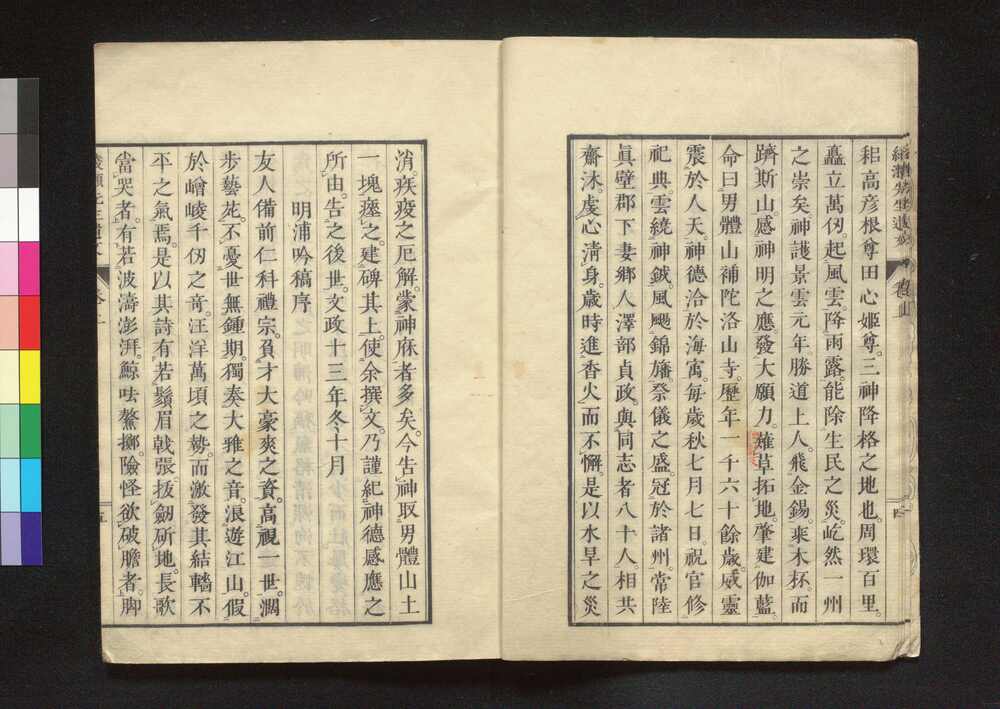 耜高彥根尊田心姬尊三神降格之地也周環百里
矗立萬仞起風雲降雨露能除生民之災屹然一州
之崇矣神護景雲元年勝道上人飛金錫乘木杯而
躋斯山感神明之應發大願力薙草拓地肇建伽藍
命曰男體山補陀洛山寺歷年一千六十餘歲威靈
震於人天神德洽於海寓每歲秋七月七日祝官修
祀典雲繞神鉞風颺錦旛祭儀之盛冠於諸州常陸
眞壁郡下妻鄉人澤部貞政與同志者八十人相共
齋沐虔心淸身歲時進香火而不懈是以水旱之災
消疾疫之厄解蒙神庥者多矣今告神取男體山土
一塊瘞之建碑其上使余撰文乃謹紀神德感應之
所由告之後世文政十三年冬十月
明浦吟稿序
友人備前仁科禮宗負才大豪爽之資高視一世濶
步藝苑不憂世無鍾期獨奏大雅之音浪遊江山假
於嶒崚千仞之奇汪洋萬頃之勢而激發其結轖不
平之氣焉是以其詩有若鬚眉戟張拔劒斫地長歌
當哭者有若波濤澎湃鯨呿鰲擲險怪欲破膽者脚